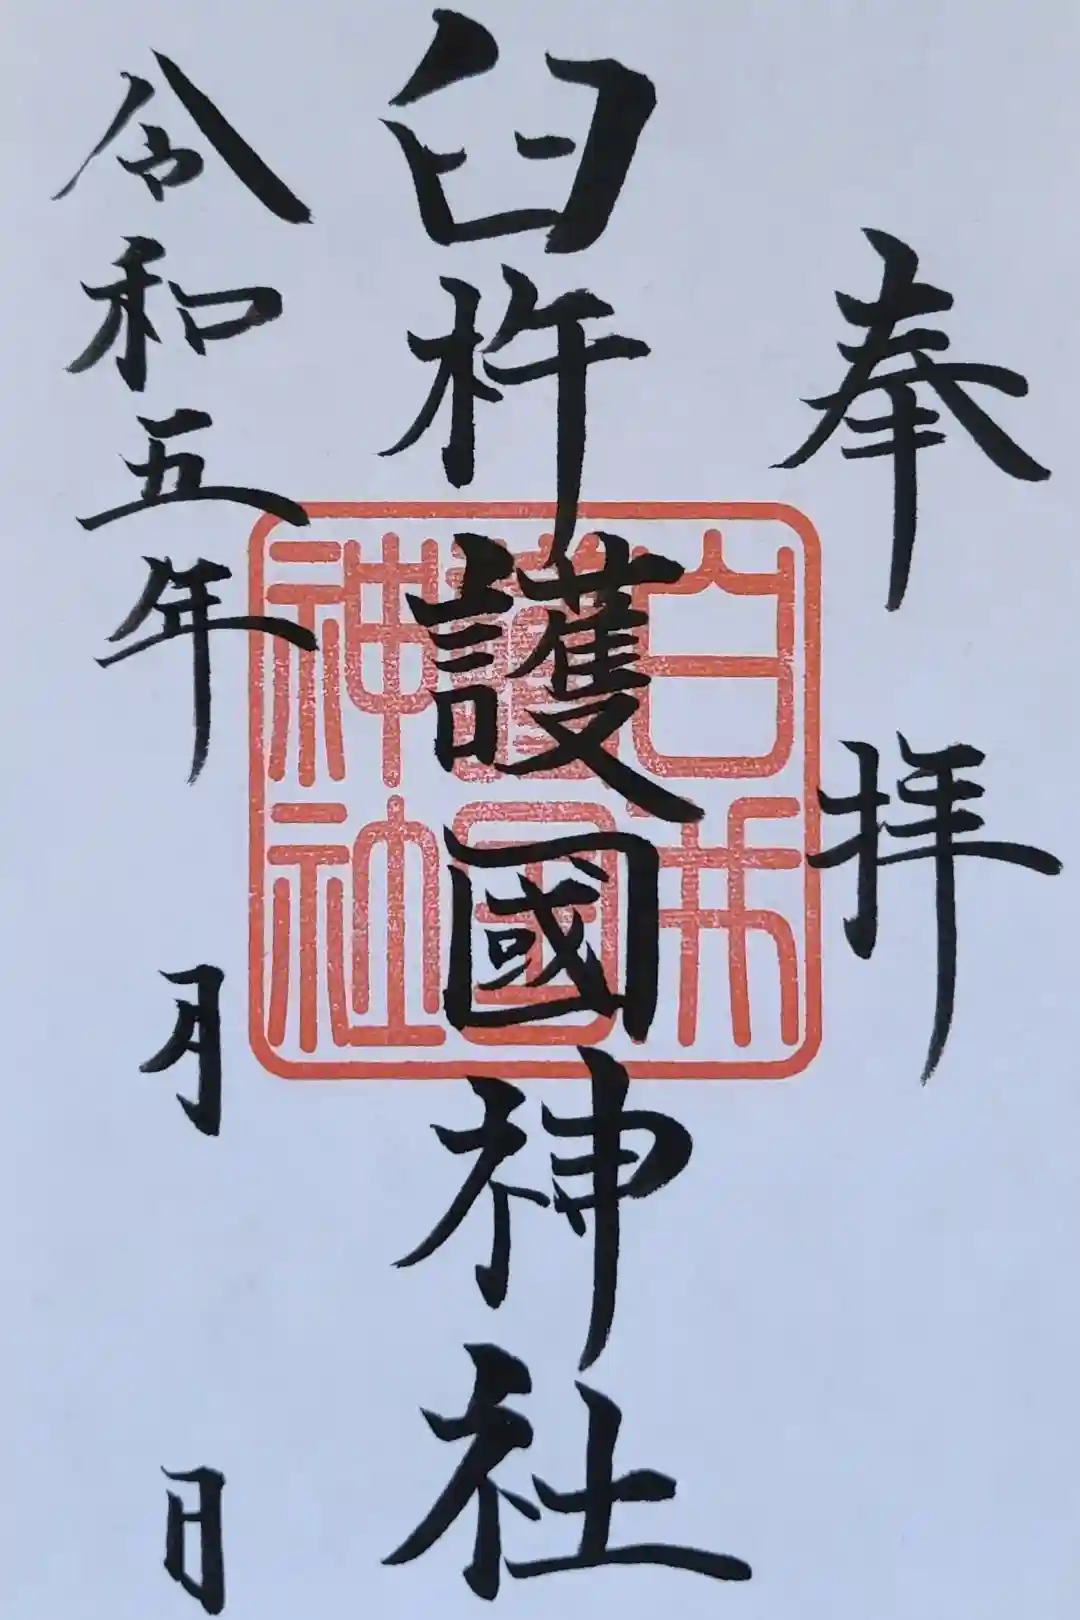 奉拝
臼杵護國神社
臼杵護國神社
令和五年 月 日